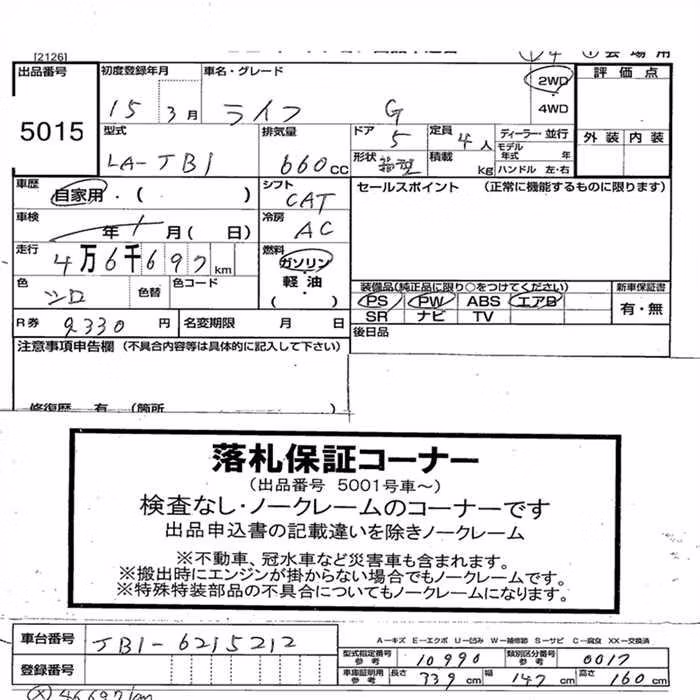 [2126]
出品番号 初度登録年月 車名・グレード 2WD 評価点
15 3月 ライフ G 4WD
5015 型式 排気量 ドア 5 定員 4人 ディーラー・並行 外装 内装
LA-JB1 660cc 形状 箱型 積載 kg モデル年式 年 ハンドル 左・右
車歴 自家用・( ) シフト CAT セールスポイント (正常に機能するものに限ります)
車検 年 月( 日) 冷房 AC
走行 4万6千697km 燃料 ガソリン
軽油 ( )
色 シロ 色替 色コード 装備品(純正品に限り○をつけてください) 新車保証書
PS PW ABS エアB 有・無
SR ナビ TV
R券 9330円 名変期限 月 日 後日品
注意事項申告欄 (不具合内容等は具体的に記入して下さい)
修復歴 有 (箇所
落札保証コーナー
(出品番号 5001号車～)
検査なし・ノークレームのコーナーです
出品申込書の記載違いを除きノークレーム
※不動車、冠水車など災害車も含まれます。
※搬出時にエンジンが掛からない場合でもノークレームです。
※特殊特装部品の不具合についてもノークレームになります。
A－キズ E－エクボ U－凹み W－補修跡 S－サビ C－腐食 XX－交換済
車台番号 JB1-6215212 型式指定番号 参考 10990 類別区分番号 参考 0017
登録番号 車庫証明用 参考 長さ 339cm 幅 147cm 高さ 160cm
46697km